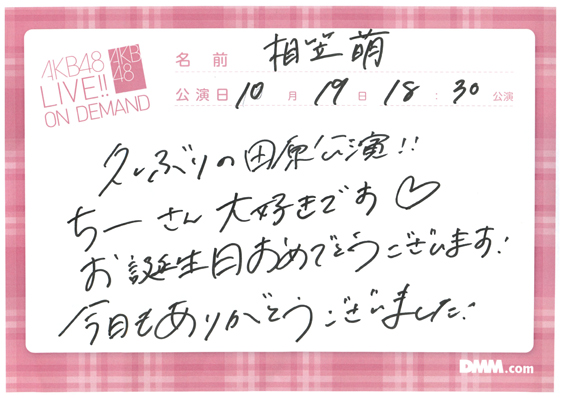 AKB48
LIVE!!
ON DEMAND
AKB
48
名前 相笠萌
公演日 10月 19日 18:30 公演
久しぶりの田原公演!!
ちーさん大好きです♡
お誕生日おめでとうございます!
今日もありがとうございました!
DMM.com